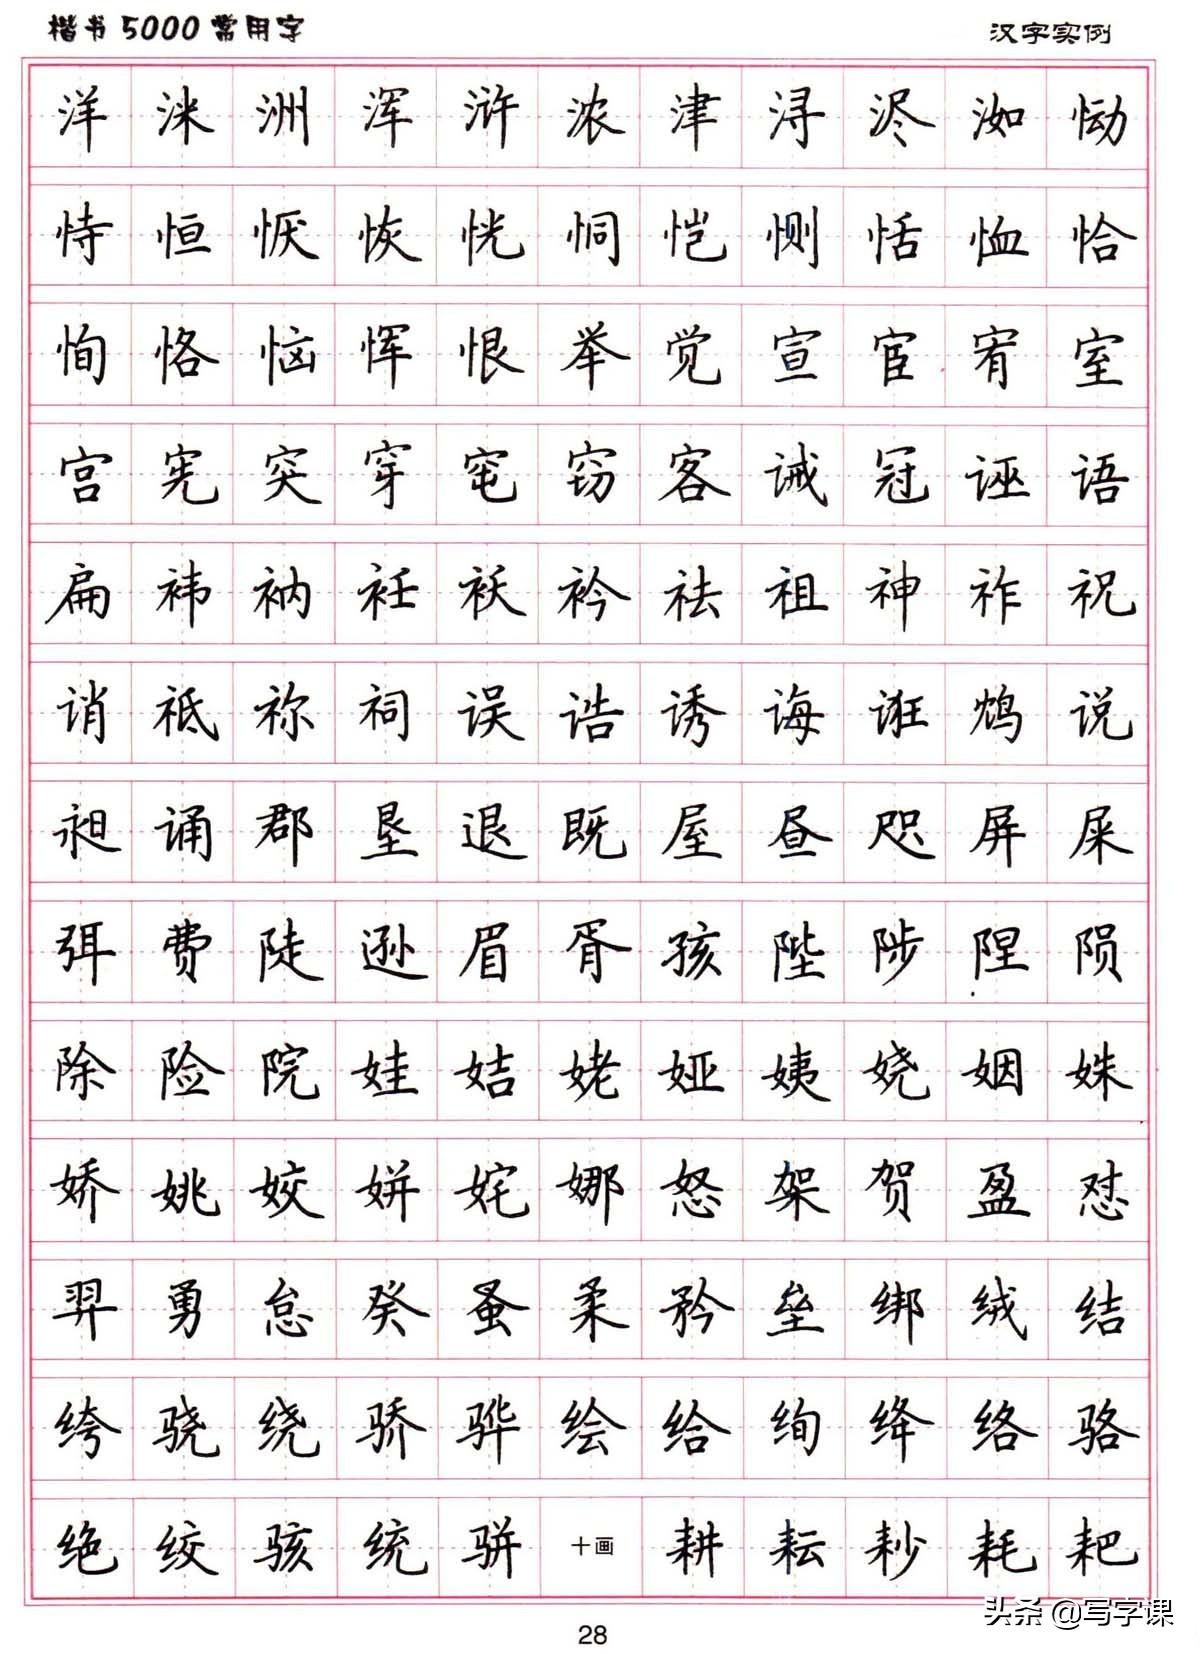 楷书5000常用字 汉字实例
洋 洣 洲 浑 浒 浓 津 浔 浕 洳 恸
恃 恒 恹 恢 恍 恫 恺 恻 恬 恤 恰
恂 恪 恼 恽 恨 举 觉 宣 宦 宥 室
宫 宪 突 穿 窀 窃 客 诫 冠 诬 语
扁 袆 衲 衽 袄 衿 祛 祖 神 祚 祝
诮 祗 祢 祠 误 诰 诱 诲 诳 鸩 说
昶 诵 郡 垦 退 既 屋 昼 咫 屏 屎
弭 费 陡 逊 眉 胥 孩 陛 陟 陧 陨
除 险 院 娃 姞 姥 娅 姨 娆 姻 姝
娇 姚 姣 姘 姹 娜 怒 架 贺 盈 怼
羿 勇 怠 癸 蚤 柔 矜 垒 绑 绒 结
绔 骁 绕 骄 骅 绘 给 绚 绛 络 骆
绝 绞 骇 统 骈 十画 耕 耘 耖 耗 耙
头条 @写字课
28